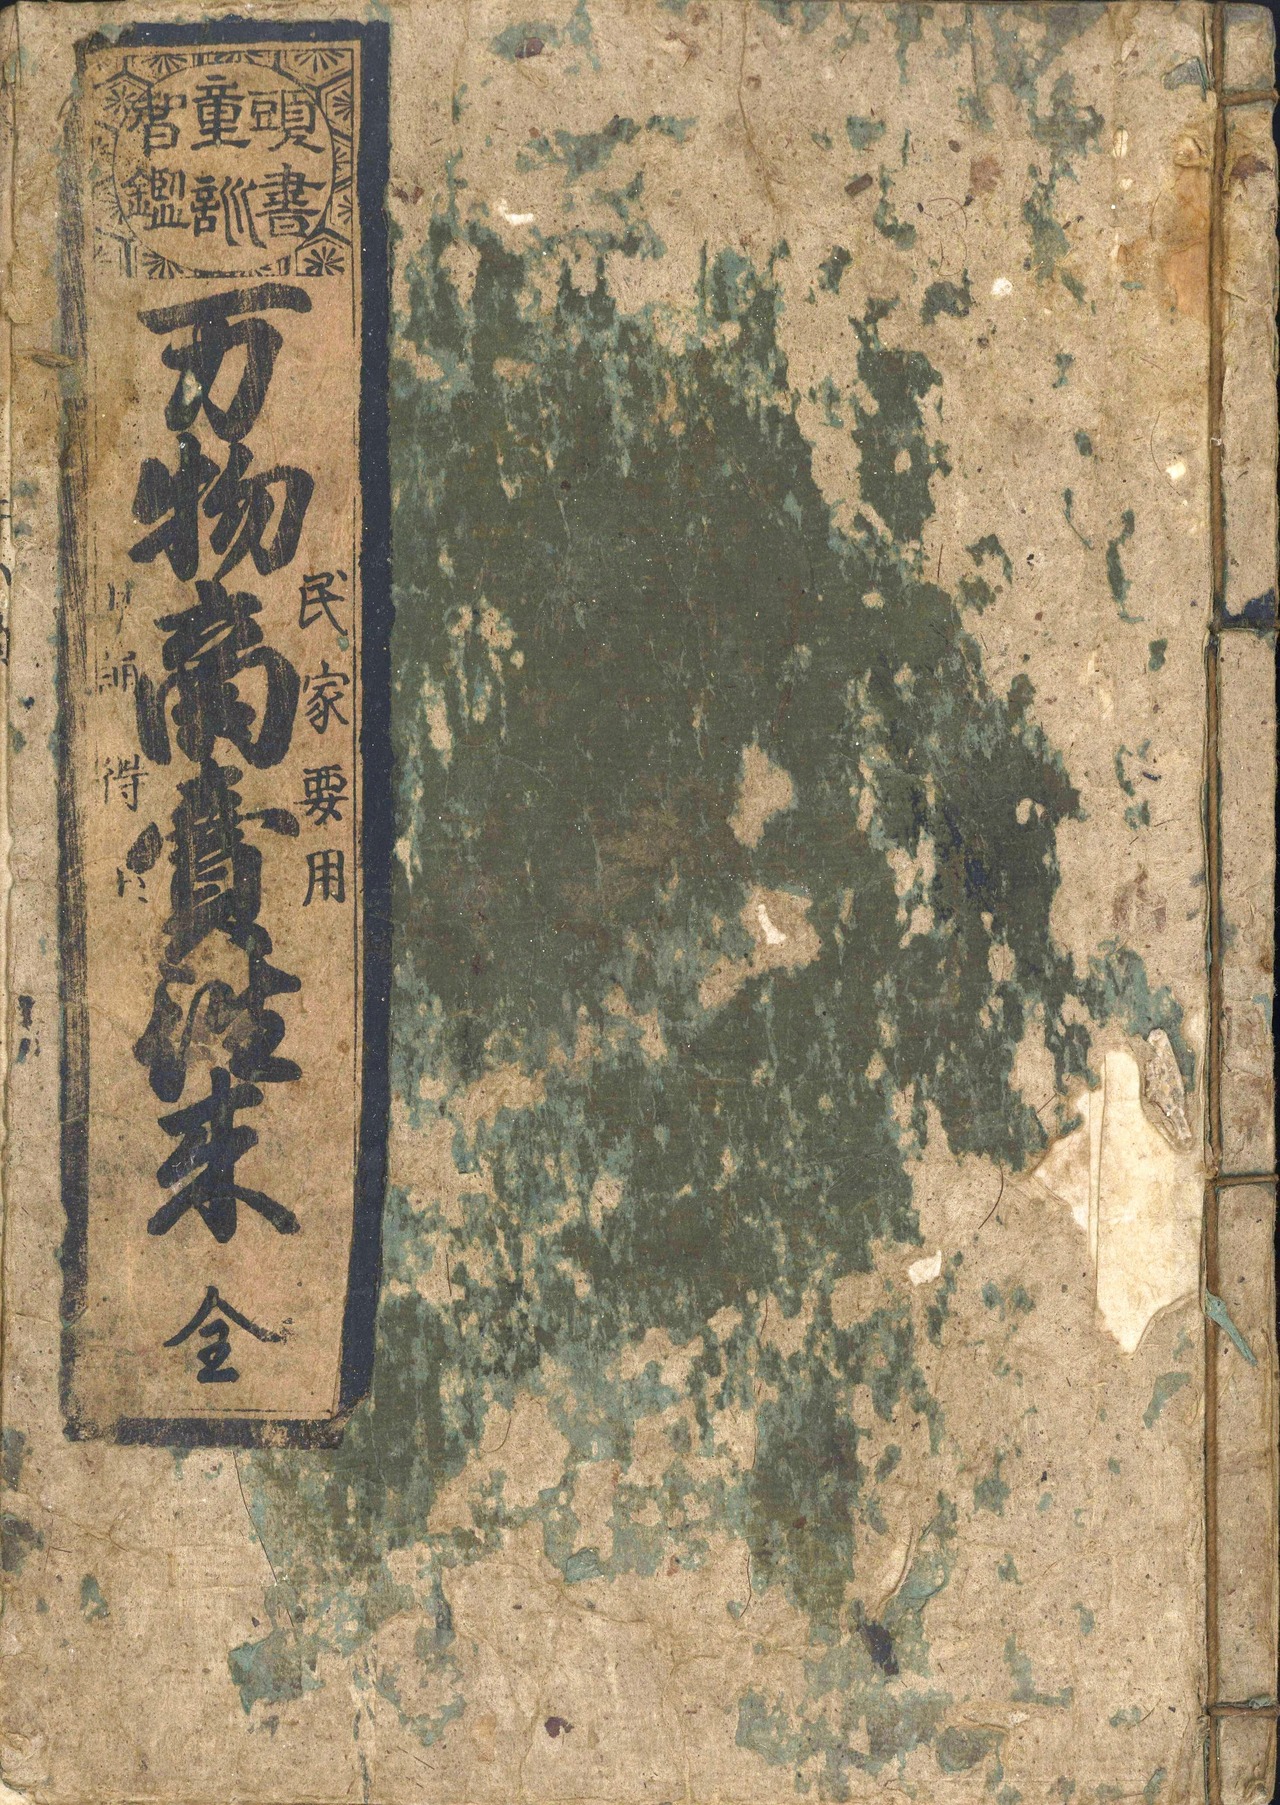 頭書
童訓
智鑑
民家要用
万物商賣往来 全
日用